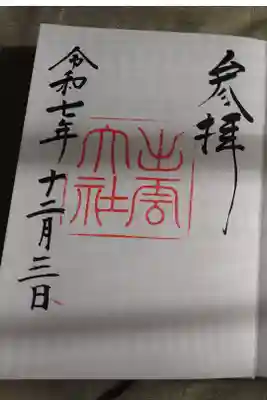 参拝
出雲
大社
令和七年十二月三日